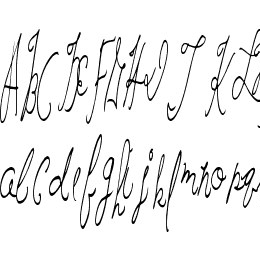 ABCDEFGHIJKL
abcdefghijklmnopq